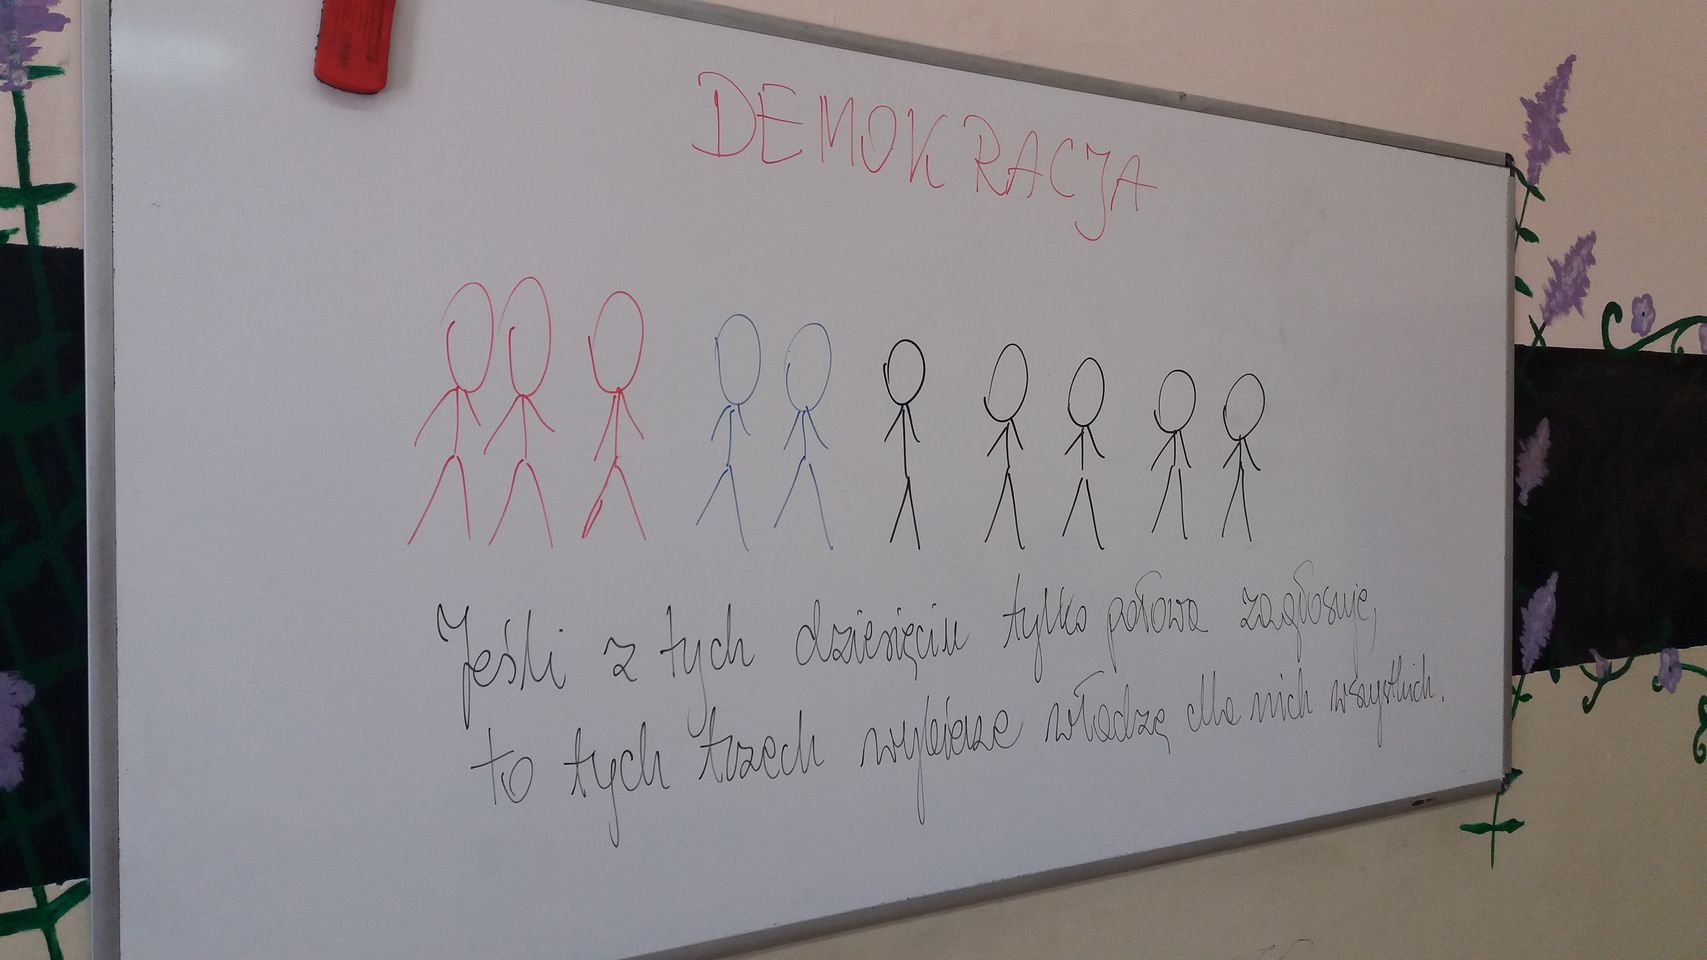 DEMOKRACJA
Jeśli z tych dziesięciu tylko połowa zagłosuje,
to tych trzech wybierze władzę dla nich wszystkich.